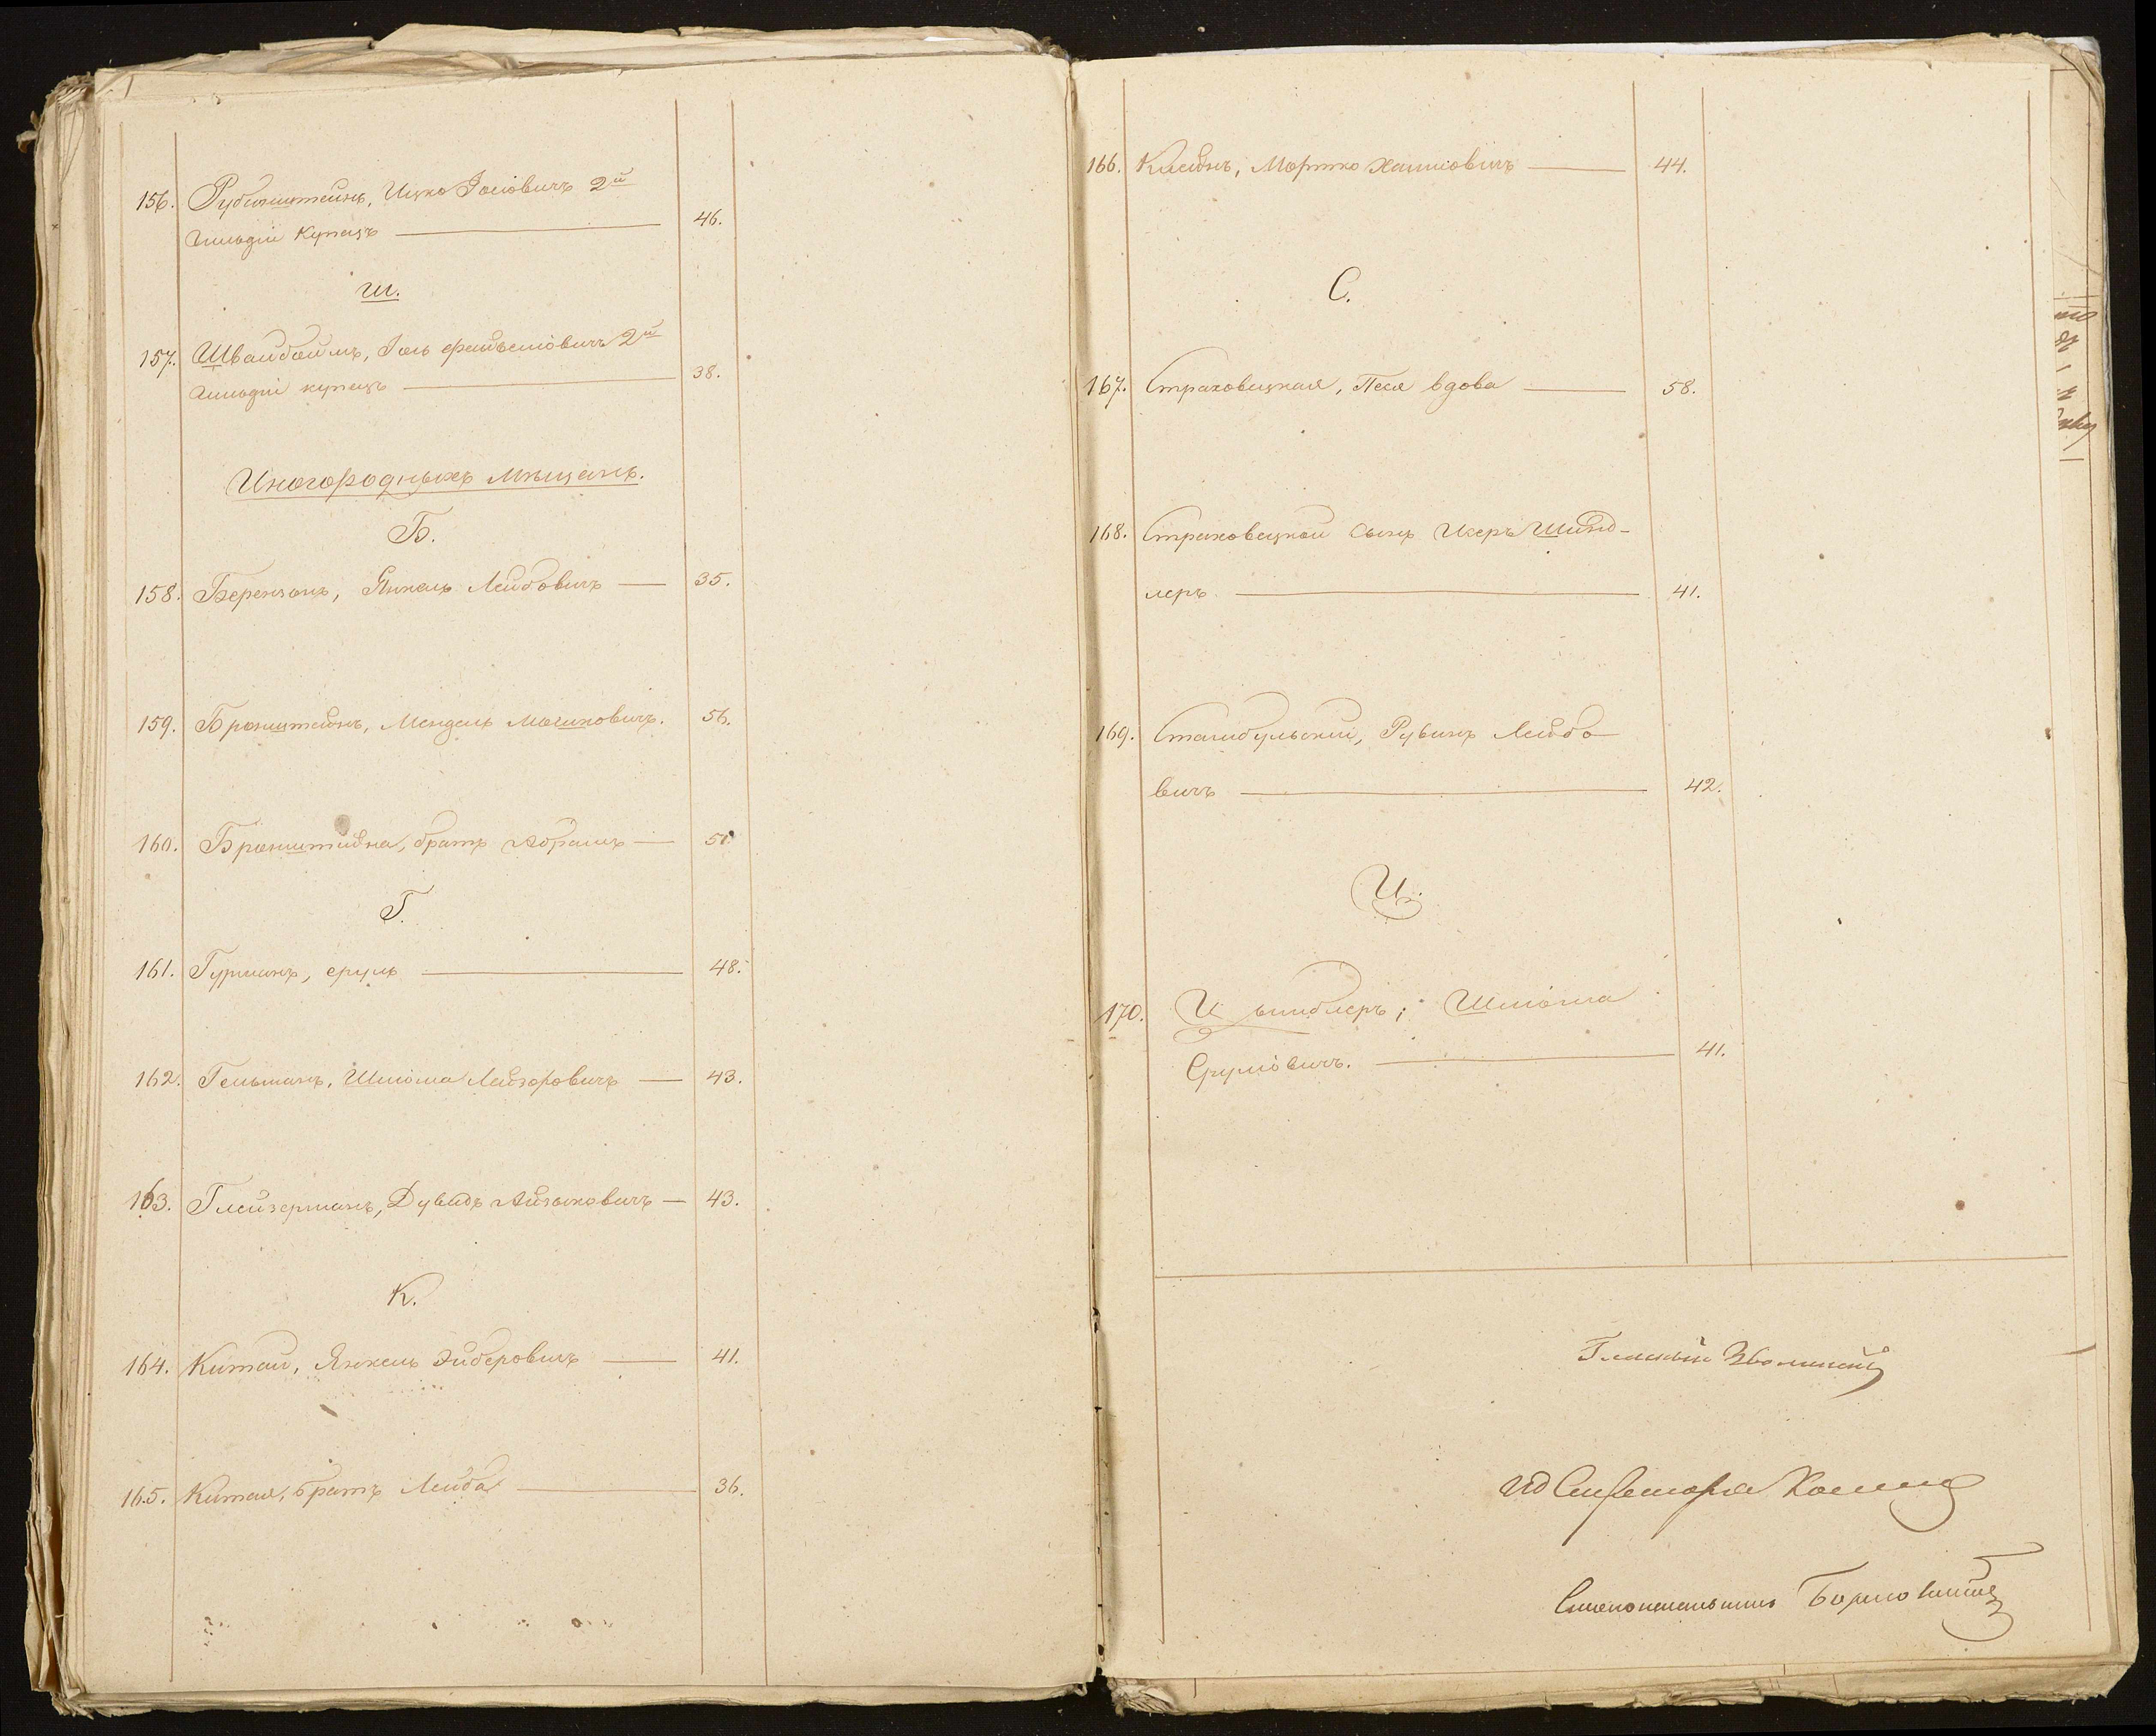 156. Рубинштейнъ, Ицко Іосіовичъ 2й
гильдіи купецъ — 46.
Ш.
157. Швайбоимъ, Іось 2й
гильдіи купецъ — 38.
Иногородныхъ мѣщанъ.
Б.
158. Берензонъ, Янкель Лейбовичъ — 35.
159. Бронштейнъ, Мендель Мошковичъ. 56.
160. Бронштейна, братъ Абрамъ — 51.
Г.
161. Гурманъ, Сруль — 48.
162. Гельманъ, Шліома Лейзоровичъ — 43.
163. Глейзерманъ, Дувидъ Айзыковичъ — 43.
К.
164. Китай, Янкель Эйберовичъ — 41.
165. Китая, братъ Лейба — 36.
166. Мортко Хаимовичъ — 44.
С.
167. Страховецкая, Песя вдова — 58.
168. Страховецкой сынъ Исеръ Шинд-
леръ — 41.
169. Стамбульскій, Рувинъ Лейбо-
вичъ — 42.
Ц.
170. Цымблеръ; Шліома
Сруліовичъ. — 41.
Гласный
ИД Секретаря
Столоначальникъ